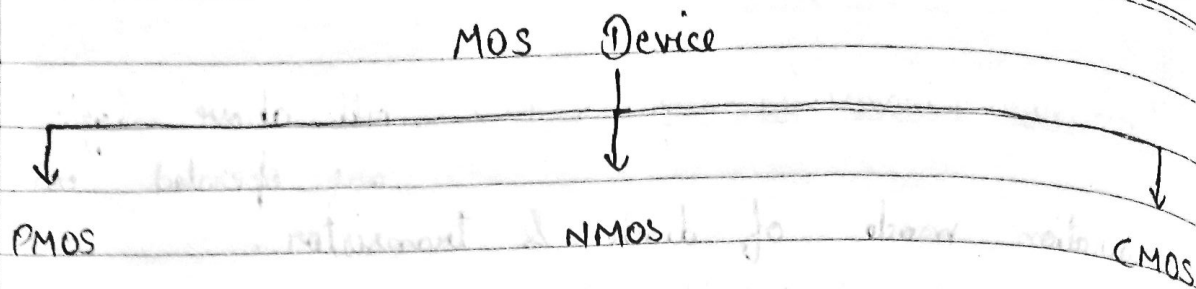 MOS Device
PMOS NMOS CMOS